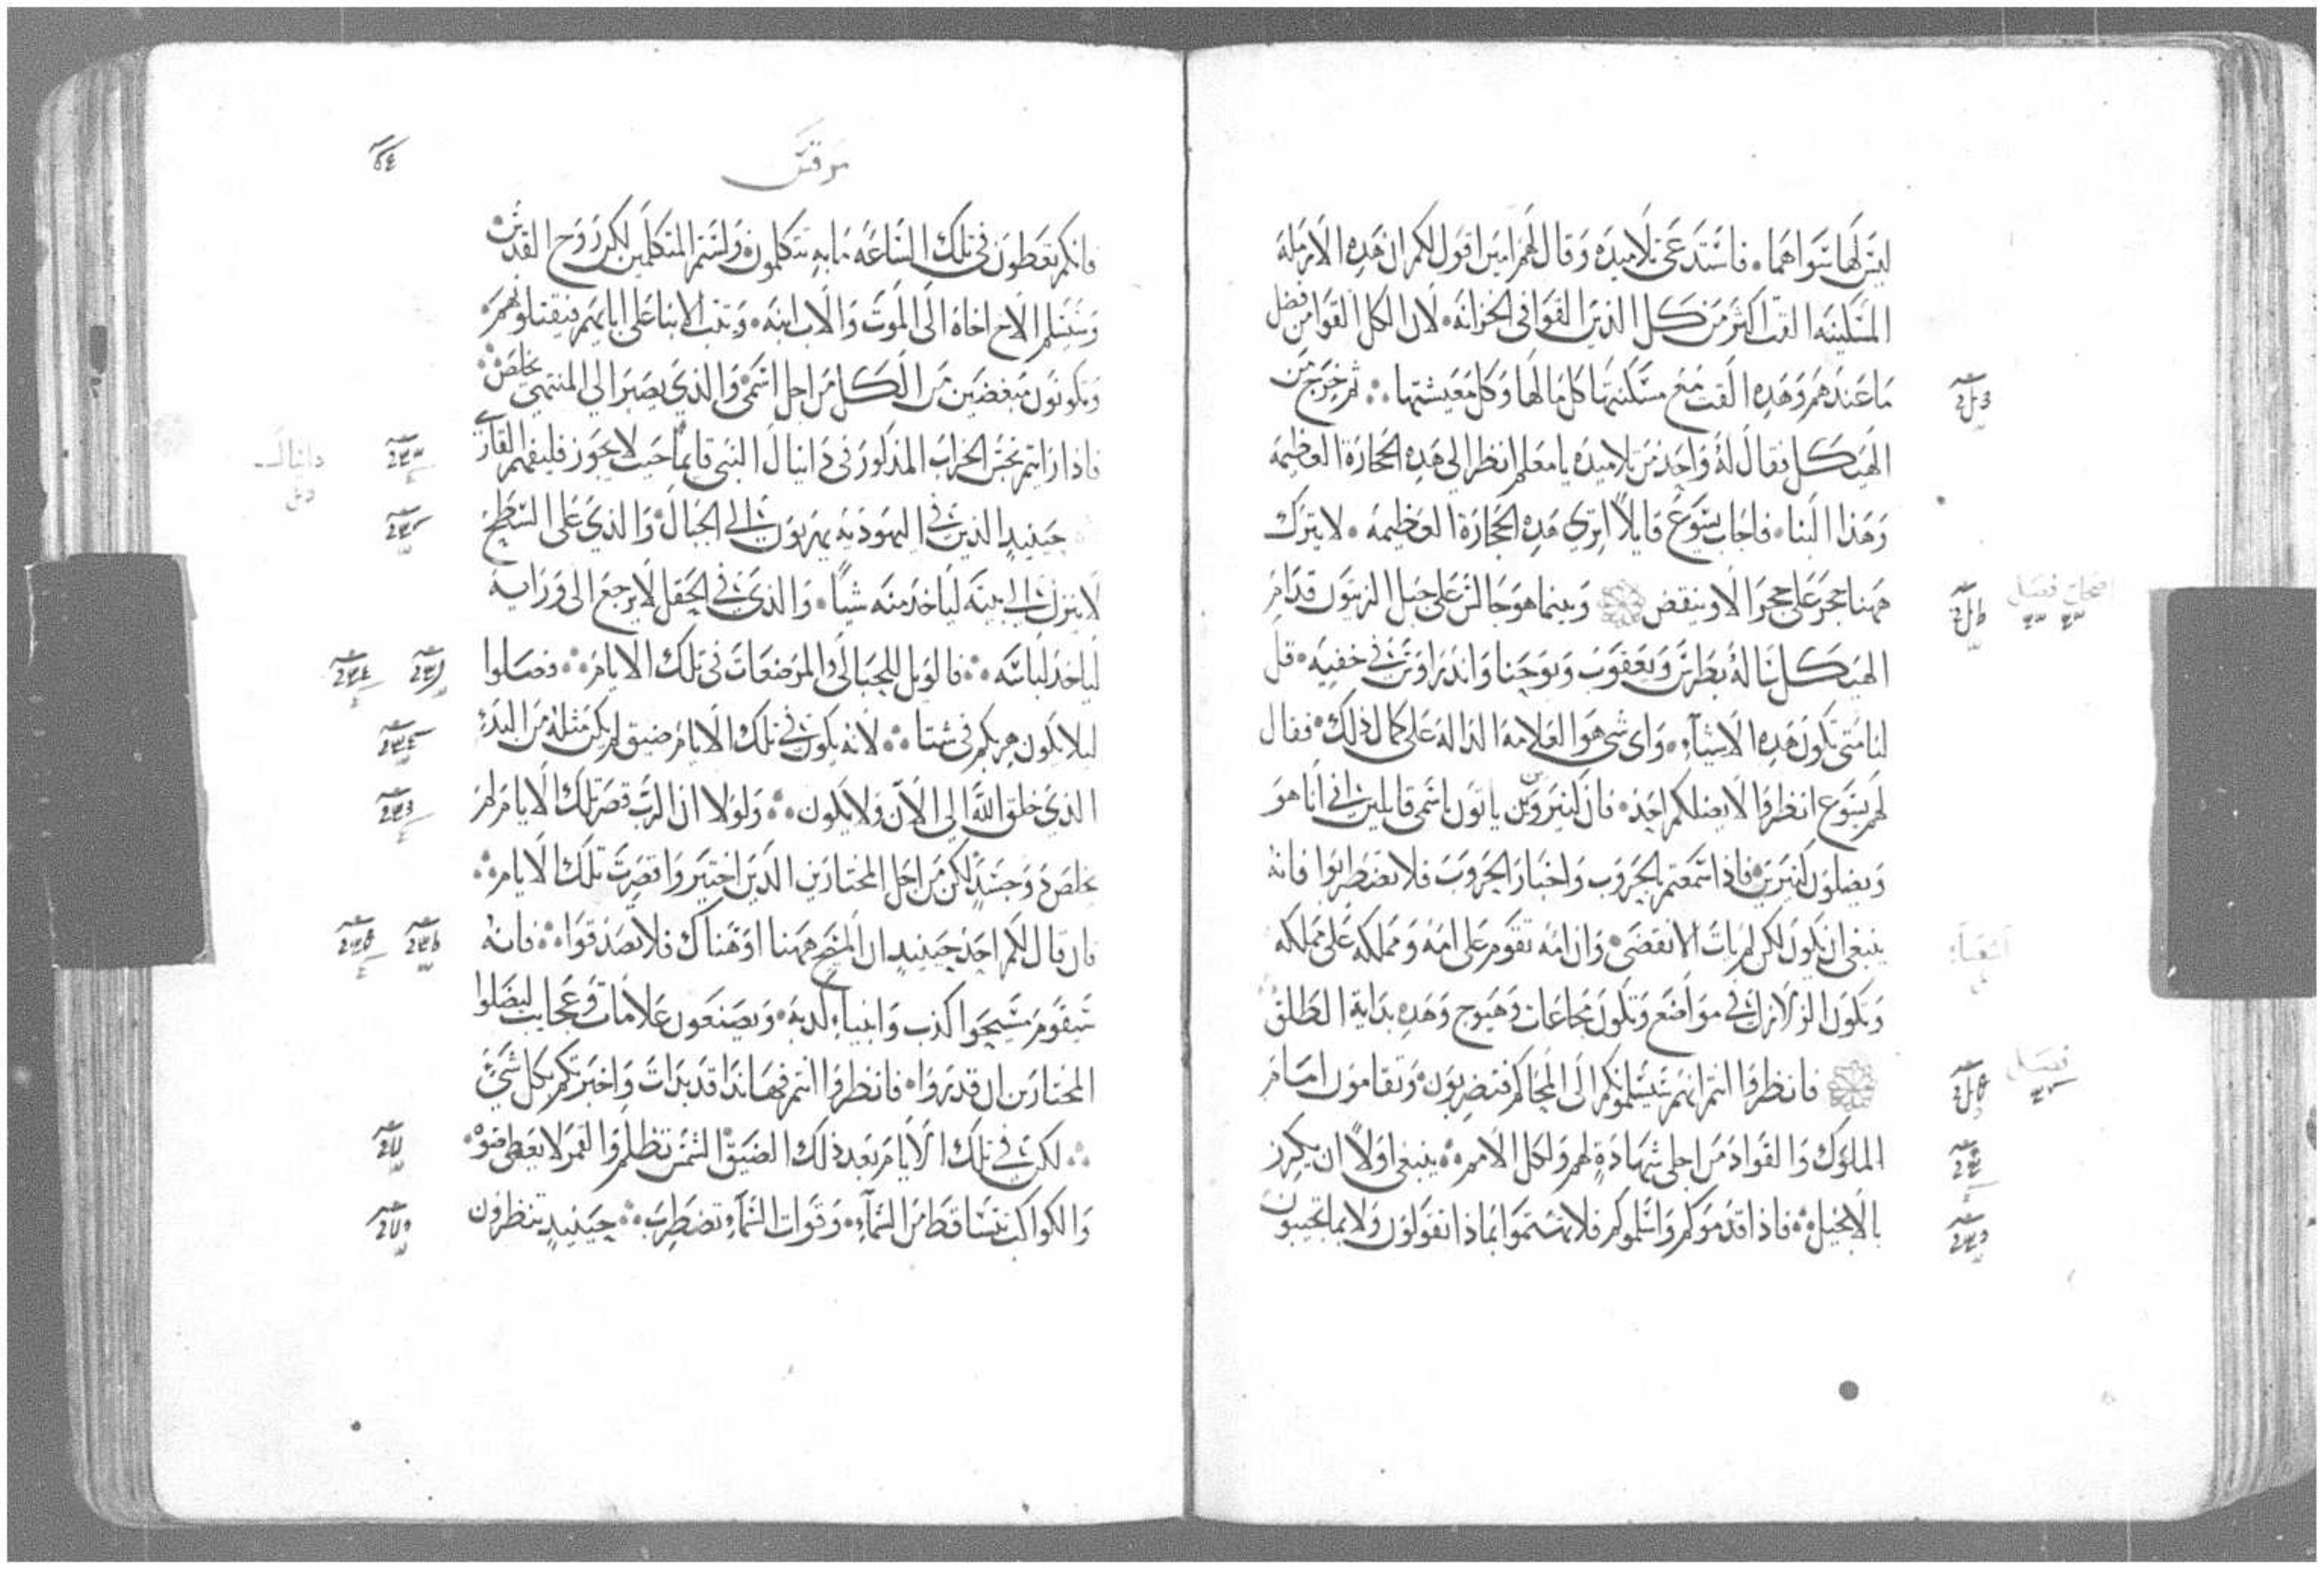 ليس لها سواهما. فاستدعى تلاميذه وقال لهم امين اقول لكم ان هذه الارمله
المسكينه القت اكثر من كل الذين القوا في الخزانه. لان الكل القوا من فضل
ما عندهم وهذه القت مع مسكنتها كل ما لها وكل معيشتها ❖ ثم خرج من
الهيكل فقال له واحد من تلاميذه يا معلم انظر الي هذه الحجارة العظيمه
وهذا البنا. فاجاب يسوع قايلاً اتري هذه الحجارة العظيمه. لا يترك
ههنا حجر على حجر الا وينقض وبينما هو جالس على جبل الزيتون قدام
اصحاح فصل
الهيكل ساله بطرس ويعقوب ويوحنا واندراوس في خفيه. قل
لنا متى تكون هذه الاشياء. واى شي هو العلامه الداله على كمال ذلك. فقال
لهم يسوع انظروا لا يضلكم احد. فان كثيرين ياتون باسمى قايلين اني انا هو
ويضلون كثيرين. فاذا سمعتم بالحروب واخبار الحروب فلا تضطربوا فانه
ينبغى ان يكون لكن لم يات الانقضى. وان امه تقوم على امه ومملكه على مملكه
اشعياء
وتكون الزلازل في مواضع وتكون مجاعات وهيوج وهذه بداية الطلق
فانظروا انتم انهم سيسلمونكم الى المحاكم فتضربون. وتقامون امام
فصل
الملوك والقواد من اجلى شهادة لهم ولكل الامم ❖ ينبغى اولاً ان يكرز
بالانجيل ❖ فاذا قدموكم واسلموكم فلا تهتموا بماذا تقولون ولا بما تجيبون
مرقس
فانكم تعطون في تلك الساعه ما به تتكلمون. ولستم المتكلمين لكن روح القدس
وسيسلم الاخ اخاه الى الموت والاب ابنه. وتثب الابنا على ابايهم فيقتلونهم.
وتكونون مبغضين من الكل من اجل اسمى. والذي يصبر الي المنتهى يخلص
فاذا رايتم نجس الخراب المذكور في دانيال النبى قايماً حيث لا يجوز فليفهم القارئ
دانيال
حينيذ الذين في اليهوديه يهربون الي الجبال. والذي على السطح
لا ينزل الي بيته لياخذ منه شياً. والذي في الحقل لا يرجع الى ورايه
لياخذ لباسه ❖ فالويل للحبالى والمرضعات فى تلك الايام ❖ فصلوا
ليلا يكون هربكم فى شتا ❖ لانه يكون في تلك الايام ضيق لم يكن مثله من البدء
الذي خلق الله الي الآن ولا يكون ❖ ولولا ان الرب قصر تلك الايام لم
يخلص ذو جسد لكن من اجل المختارين الذين اختير واقصرت تلك الايام ❖
فان قال لكم احد حينيذ ان المسيح ههنا او هناك فلا تصدقوا ❖ فانه
سيقوم مسيحوا كذب وانبياء كدبه. ويصنعون علامات وعجايب ليضلوا
المختارين ان قدروا. فانظروا انتم فهانذا قد بدات واخبرتكم بكل شيء
❖ لكن في تلك الايام بعد ذلك الضيق الشمس تظلم والقمر لا يعطى ضوه.
والكواكب تتساقط من السماء. وقوات السماء تضطرب ❖ حينيذ تنظرون